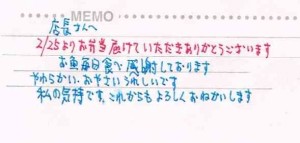 MEMO
店長さんへ
2/25よりお弁当届けていただきありがとうございます
お魚毎日食べ感謝しております
やわらかい、おやさいうれしいです
私の気持です。これからもよろしくおねがいします